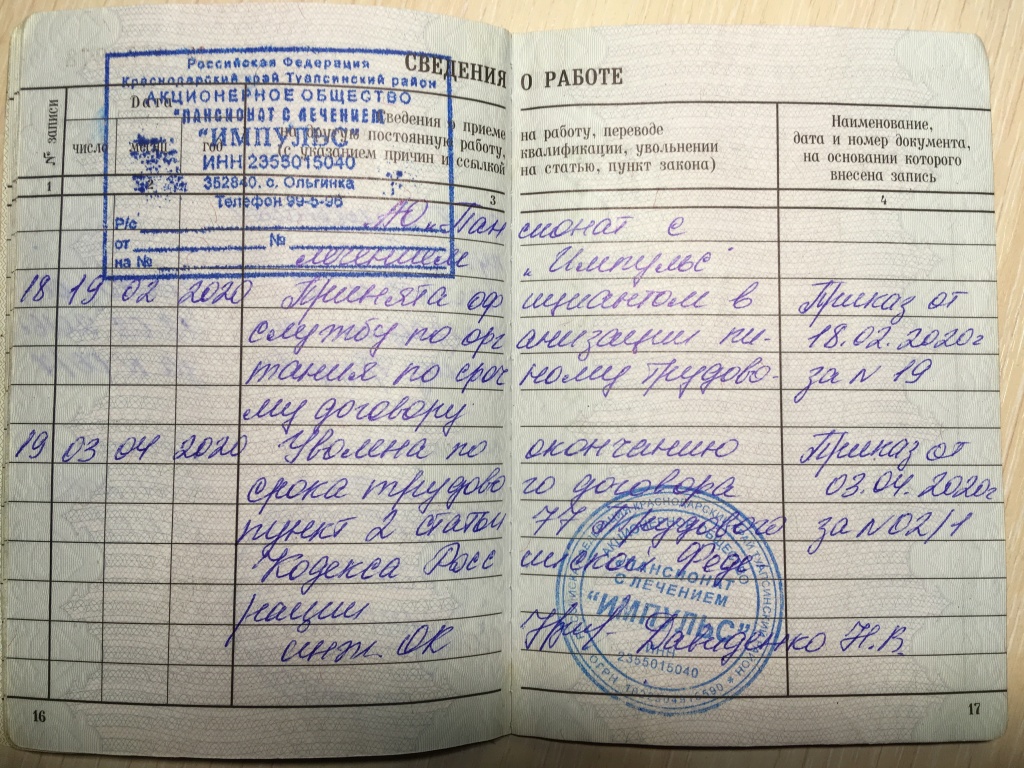 СВЕДЕНИЯ О РАБОТЕ
Российская Федерация
Краснодарский край Туапсинский район
АКЦИОНЕРНОЕ ОБЩЕСТВО
"ПАНСИОНАТ С ЛЕЧЕНИЕМ
"ИМПУЛЬС"
ИНН 2355015040
352840, с. Ольгинка
Телефон 99-5-96
Р/с
от №
на №
№ записи
Дата
число
год
Сведения о приеме на работу, переводе
на другую постоянную работу, квалификации, увольнении
(с указанием причин и ссылкой на статью, пункт закона)
Наименование,
дата и номер документа,
на основании которого
внесена запись
1 3 4
АО "Пансионат с
лечением „Импульс"
18 19 02 2020 Принята официантом в Приказ от
службу по организации пи- 18.02.2020г
тания по срочному трудово- за № 19
му договору
19 03 04 2020 Уволена по окончанию Приказ от
срока трудового договора 03.04.2020г
пункт 2 статьи 77 Трудового за №02/1
Кодекса Российской Феде
рации
инж. ОК Давиденко Н.В.
"ПАНСИОНАТ
С ЛЕЧЕНИЕМ
"ИМПУЛЬС"
ИНН
2355015040
16
17